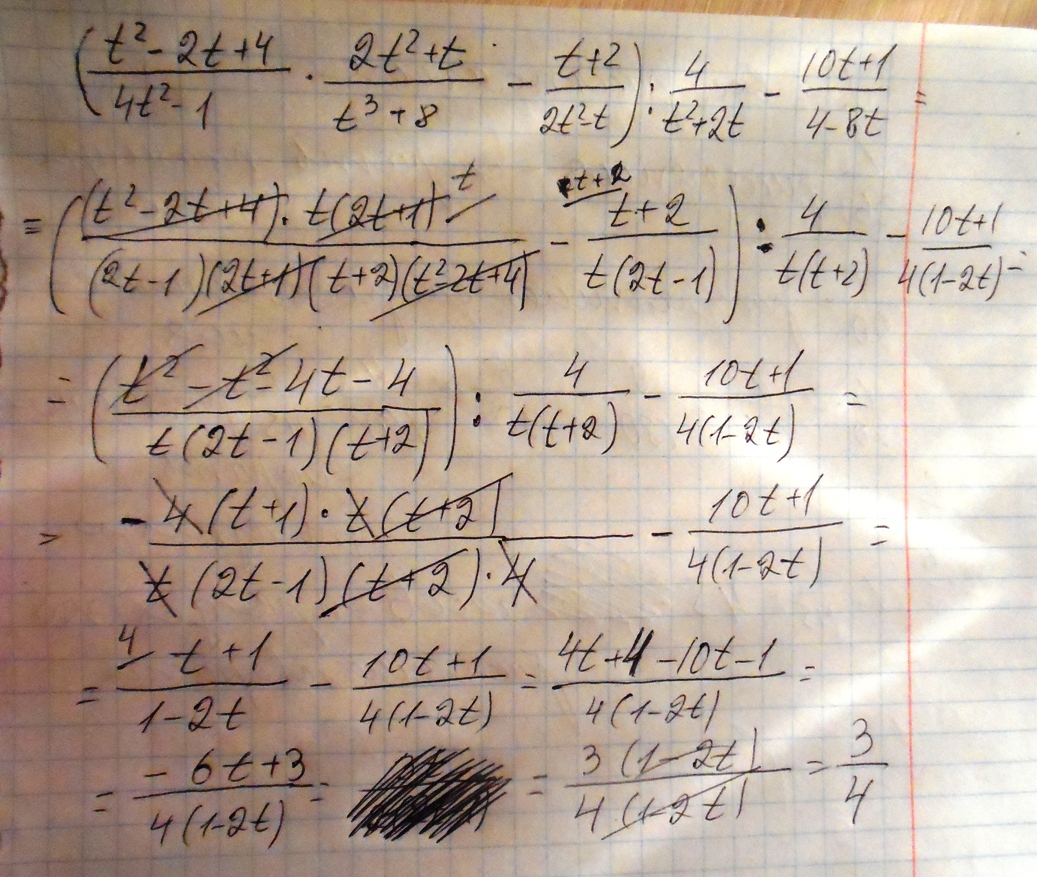 (t² - 2t + 4)/(4t² - 1) · (2t² + t)/(t³ + 8) - (t + 2)/(2t² - t)) : 4/(t² + 2t) - (10t + 1)/(4 - 8t) =
= ((t² - 2t + 4) · t(2t + 1) t/((2t - 1)(2t + 1)(t + 2)(t² - 2t + 4)) - t + 2 (t + 2)/(t(2t - 1))) : 4/(t(t + 2)) - (10t + 1)/(4(1 - 2t)) =
= ((t² - t² - 4t - 4)/(t(2t - 1)(t + 2))) : 4/(t(t + 2)) - (10t + 1)/(4(1 - 2t)) =
= (-4(t + 1) · t(t + 2))/(t(2t - 1)(t + 2) · 4) - (10t + 1)/(4(1 - 2t)) =
= 4 (t + 1)/(1 - 2t) - (10t + 1)/(4(1 - 2t)) = (4t + 4 - 10t - 1)/(4(1 - 2t)) =
= (-6t + 3)/(4(1 - 2t)) = = (3(1 - 2t))/(4(1 - 2t)) = 3/4